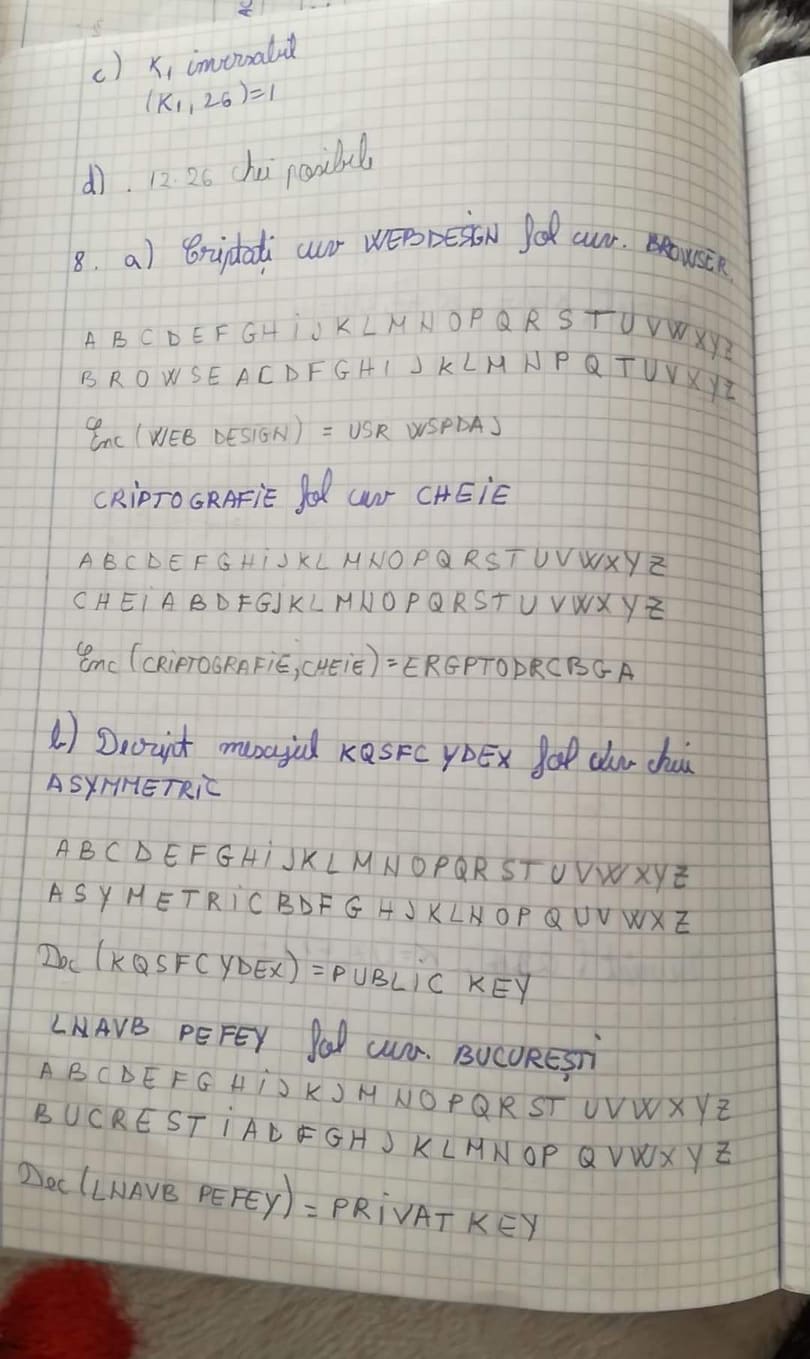 c) K₁ inversabil
(K₁, 26)=1
d). 12·26 chei posibile
8. a) Criptați cuv WEBDESIGN fol cuv. BROWSER.
A B C D E F G H I J K L M N O P Q R S T U V W X Y Z
B R O W S E A C D F G H I J K L M N P Q T U V X Y Z
Enc (WEB DESIGN) = USR WSPDAJ
CRIPTOGRAFIE fol cuv CHEIE
A B C D E F G H I J K L M N O P Q R S T U V W X Y Z
C H E I A B D F G J K L M N O P Q R S T U V W X Y Z
Enc (CRIPTOGRAFIE, CHEIE) = ERGPTODRCBGA
b) Decript mesajul KQSFC YDEX fol cuv cheii
ASYMMETRIC
A B C D E F G H I J K L M N O P Q R S T U V W X Y Z
A S Y M E T R I C B D F G H J K L N O P Q U V W X Z
Dec (KQSFC YDEX) = PUBLIC KEY
LNAVB PEFEY fol cuv. BUCUREȘTI
A B C D E F G H I J K J M N O P Q R S T U V W X Y Z
B U C R E S T I A D F G H J K L M N O P Q V W X Y Z
Dec (LNAVB PEFEY) = PRIVAT KEY